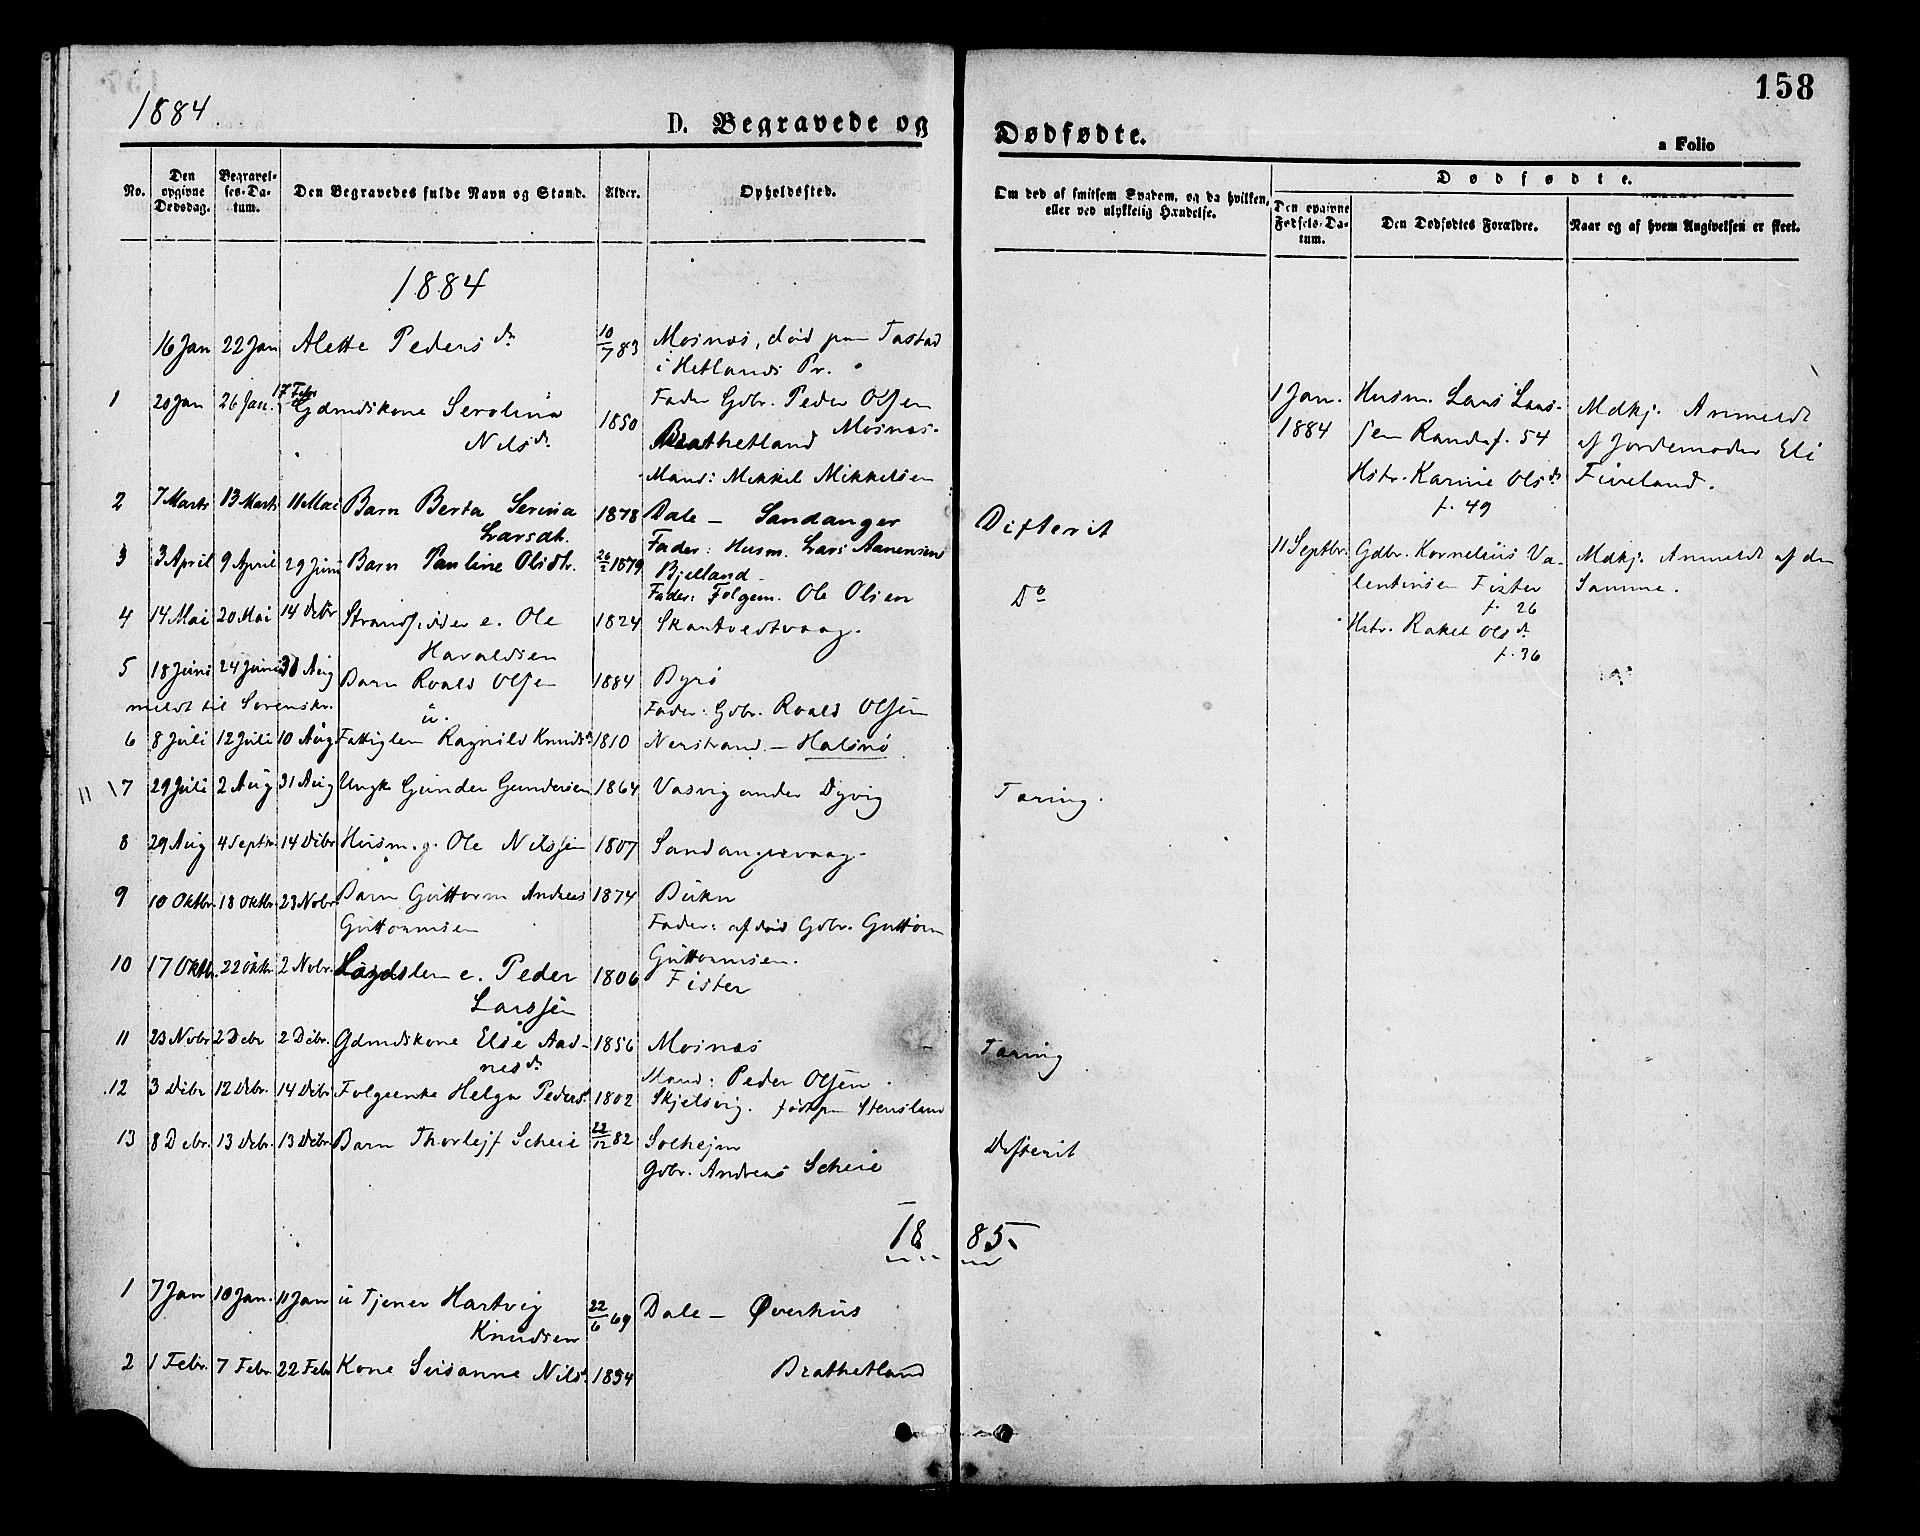 1884
158
D. Begravede og Dødfødte.
a Folio
No.
Den opgivne Dødsdag.
Begravelses-Datum.
Den Begravedes fulde Navn og Stand.
Alder.
Opholdssted.
Om død af smitsom Sygdom, og da hvilken, eller ved ulykkelig Hændelse.
Dødfødte.
Den opgivne Fødsels-Datum.
Den Dødfødtes Forældre.
Naar og af hvem Angivelsen er skeet.
1884
16 Jan 22 Jan Alette Peders dr 10/7 83 Mosnæs, død paa Tastad
i Hetlands Pr.
Fader Gdbr. Peder Olsen
Mosnæs.
1 20 Jan 26 Jan. 17 Febr Gdmdskone Serolina 1850 Brathetland
Nilsdr
Mand: Mikkel Mikkelsen
1 Jan. Husm. Lars Lars-
1884 sen Randa f. 54
Hstr. Karine Olsdr
f. 49
Mdkj. Anmeldt
af Jordemoder Eli
Fiveland.
2 7 Marts 13 Marts 11 Mai Barn Berta Serina 1878 Dale — Sandanger Difterit
Larsdtr.
Fader: Husm. Lars Aanensen
3 3 April 9 April 29 Juni Barn Pauline Olsdtr. 26/2 1879 Bjelland Do
Fader: Folgem. Ole Olsen
11 Septbr. Gdbr. Kornelius Va-
lentinsen Fister
f. 26
Hstr. Rakel Olsdr
f. 36
Mdkj. Anmeldt af den
Samme.
4 14 Mai 20 Mai 14 Debr Strandsidder e. Ole 1824 Skartvedtvaag.
Haraldsen
5 18 Juni 24 Juni 31 Aug Barn Roald Olsen 1884 Byrø
meldt til Sorenskr. u.
Fader. Gdbr. Roald Olsen
6 8 Juli 12 Juli 10 Aug Fattiglem Ragnild Knudsdr 1810 Nerstrand — Halsnø
7 29 Juli 2 Aug 31 Aug Ungk Gunder Gundersen 1864 Vasvig under Dyvig Tæring.
8 29 Aug 4 Septbr 14 Debr Husm. g. Ole Nilssen 1807 Sandangervaag.
9 10 Oktbr. 18 Oktbr. 23 Nobr. Barn Guttorm Andreas 1874 Bukn
Guttormsen
Fader: afdød Gdbr. Guttorm
Guttormsen.
10 17 Oktb. 22 Oktbr. 2 Nobr. Lægdslem e. Peder 1806 Fister
Larssen
11 23 Nobr 2 Debr 2 Debr. Gdmdskone Elie Aad- 1856 Mosnæs Tæring
nesdr
Mand: Peder Olsen.
12 3 Debr 12 Debr. 14 Debr Folgeenke Helga Pedersdr 1802 Skjelsvig. født paa Stensland
13 8 Debr. 13 Debr. 13 Debr. Barn Thorlejf Scheie 22/12 82 Solhejm Difterit
Gdbr. Andreas Scheie
1885.
1 7 Jan 10 Jan. 11 Jan u Tjener Hartvig 22/6 69 Dale — Øverhus
Knudsen
2 1 Febr. 7 Febr 22 Febr Kone Susanne Nilsdr 1834 Brathetland